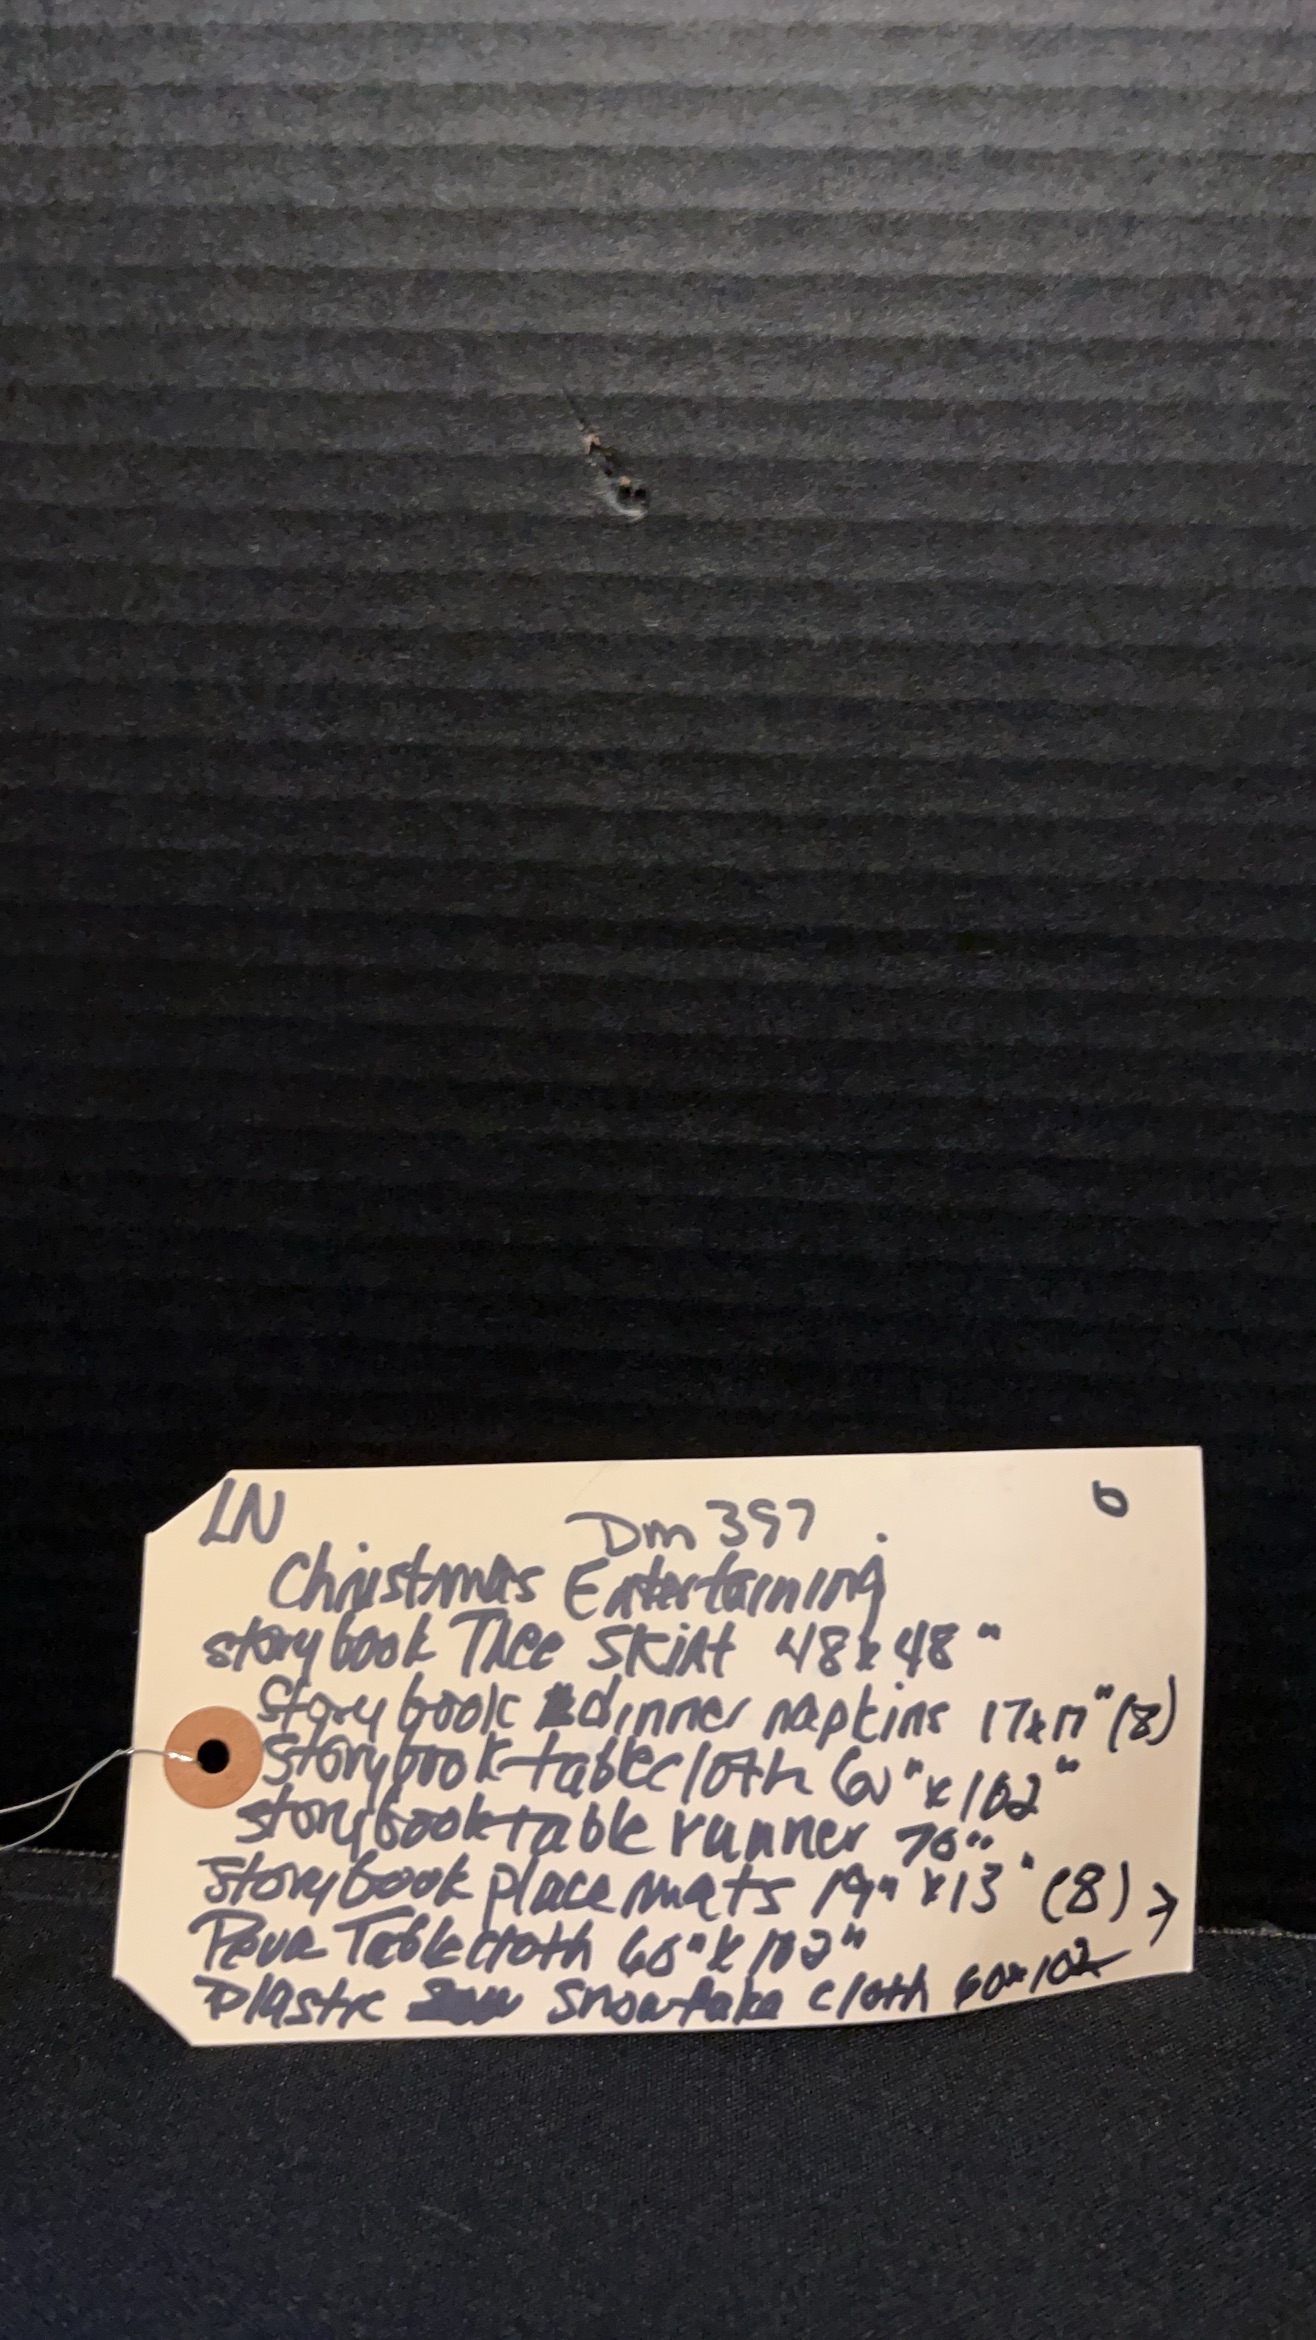 LN Dm 397 6
Christmas Entertaining
storybook Tree Skirt 48x48"
storybook dinner napkins 17x17" (8)
storybook tablecloth 60" x 102"
storybook table runner 70"
storybook place mats 19" x 13" (8) →
Peva Tablecloth 60" x 102"
Plastic snowflake cloth 60x102